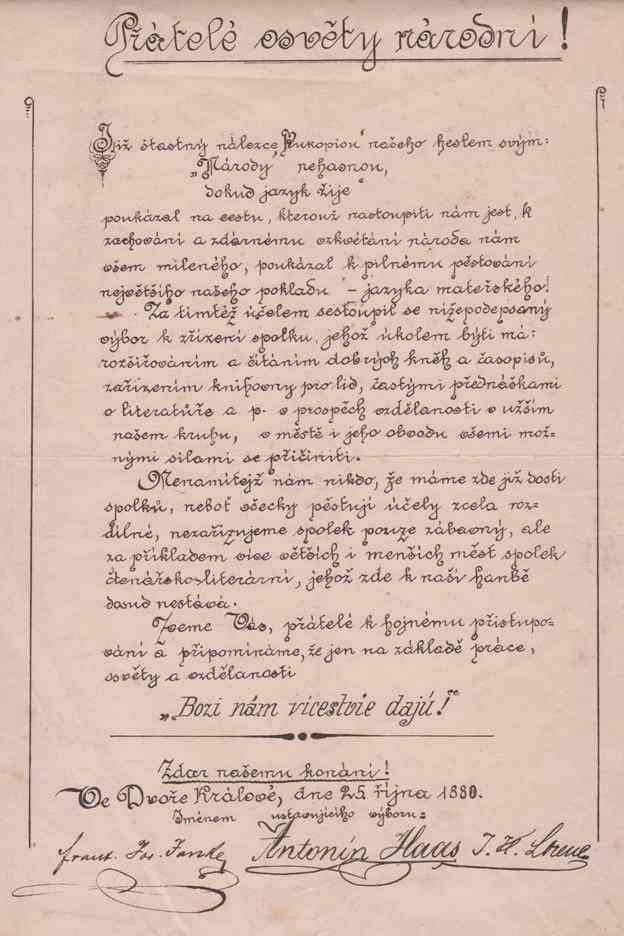 Přátelé osvěty národní!
Již šťastný nálezce „Rukopisu“ našeho heslem svým:
„Národy nehasnou,
dokud jazyk žije“
poukázal na cestu, kterouž nastoupiti nám jest, k
zachování a zdárnému vzkvétání národa nám
všem mileného, poukázal k pilnému pěstování
největšího našeho pokladu – jazyka mateřského!
Za tímtéž účelem sestoupil se nížepodepsaný
výbor k zřízení spolku, jehož úkolem býti má:
rozšiřováním a čítáním dobrých kněh a časopisů,
zařízením knihovny pro lid, častými přednáškami
o literatůře a p. v prospěch vzdělanosti v užším
našem kruhu, v městě i jeho obvodu všemi mož-
nými silami se přičiniti.
Nenamítejž nám nikdo, že máme zde již dosti
spolků, neboť všecky pěstují účely zcela roz-
dílné, nezařizujeme spolek pouze zábavný, ale
za příkladem více větších i menších měst spolek
čtenářsko-literární, jehož zde k naší hanbě
dosud nestává.
Zveme Vás, přátelé k hojnému přistupo-
vání a připomínáme, že jen na základě práce,
osvěty a vzdělanosti
„Bozi nám vícestvie dajú!“
Zdar našemu konání!
Ve Dvoře Králové, dne 25. října 1880.
Jménem ustavujícího výboru:
Frant. Jos. Antonín Haas J. K.